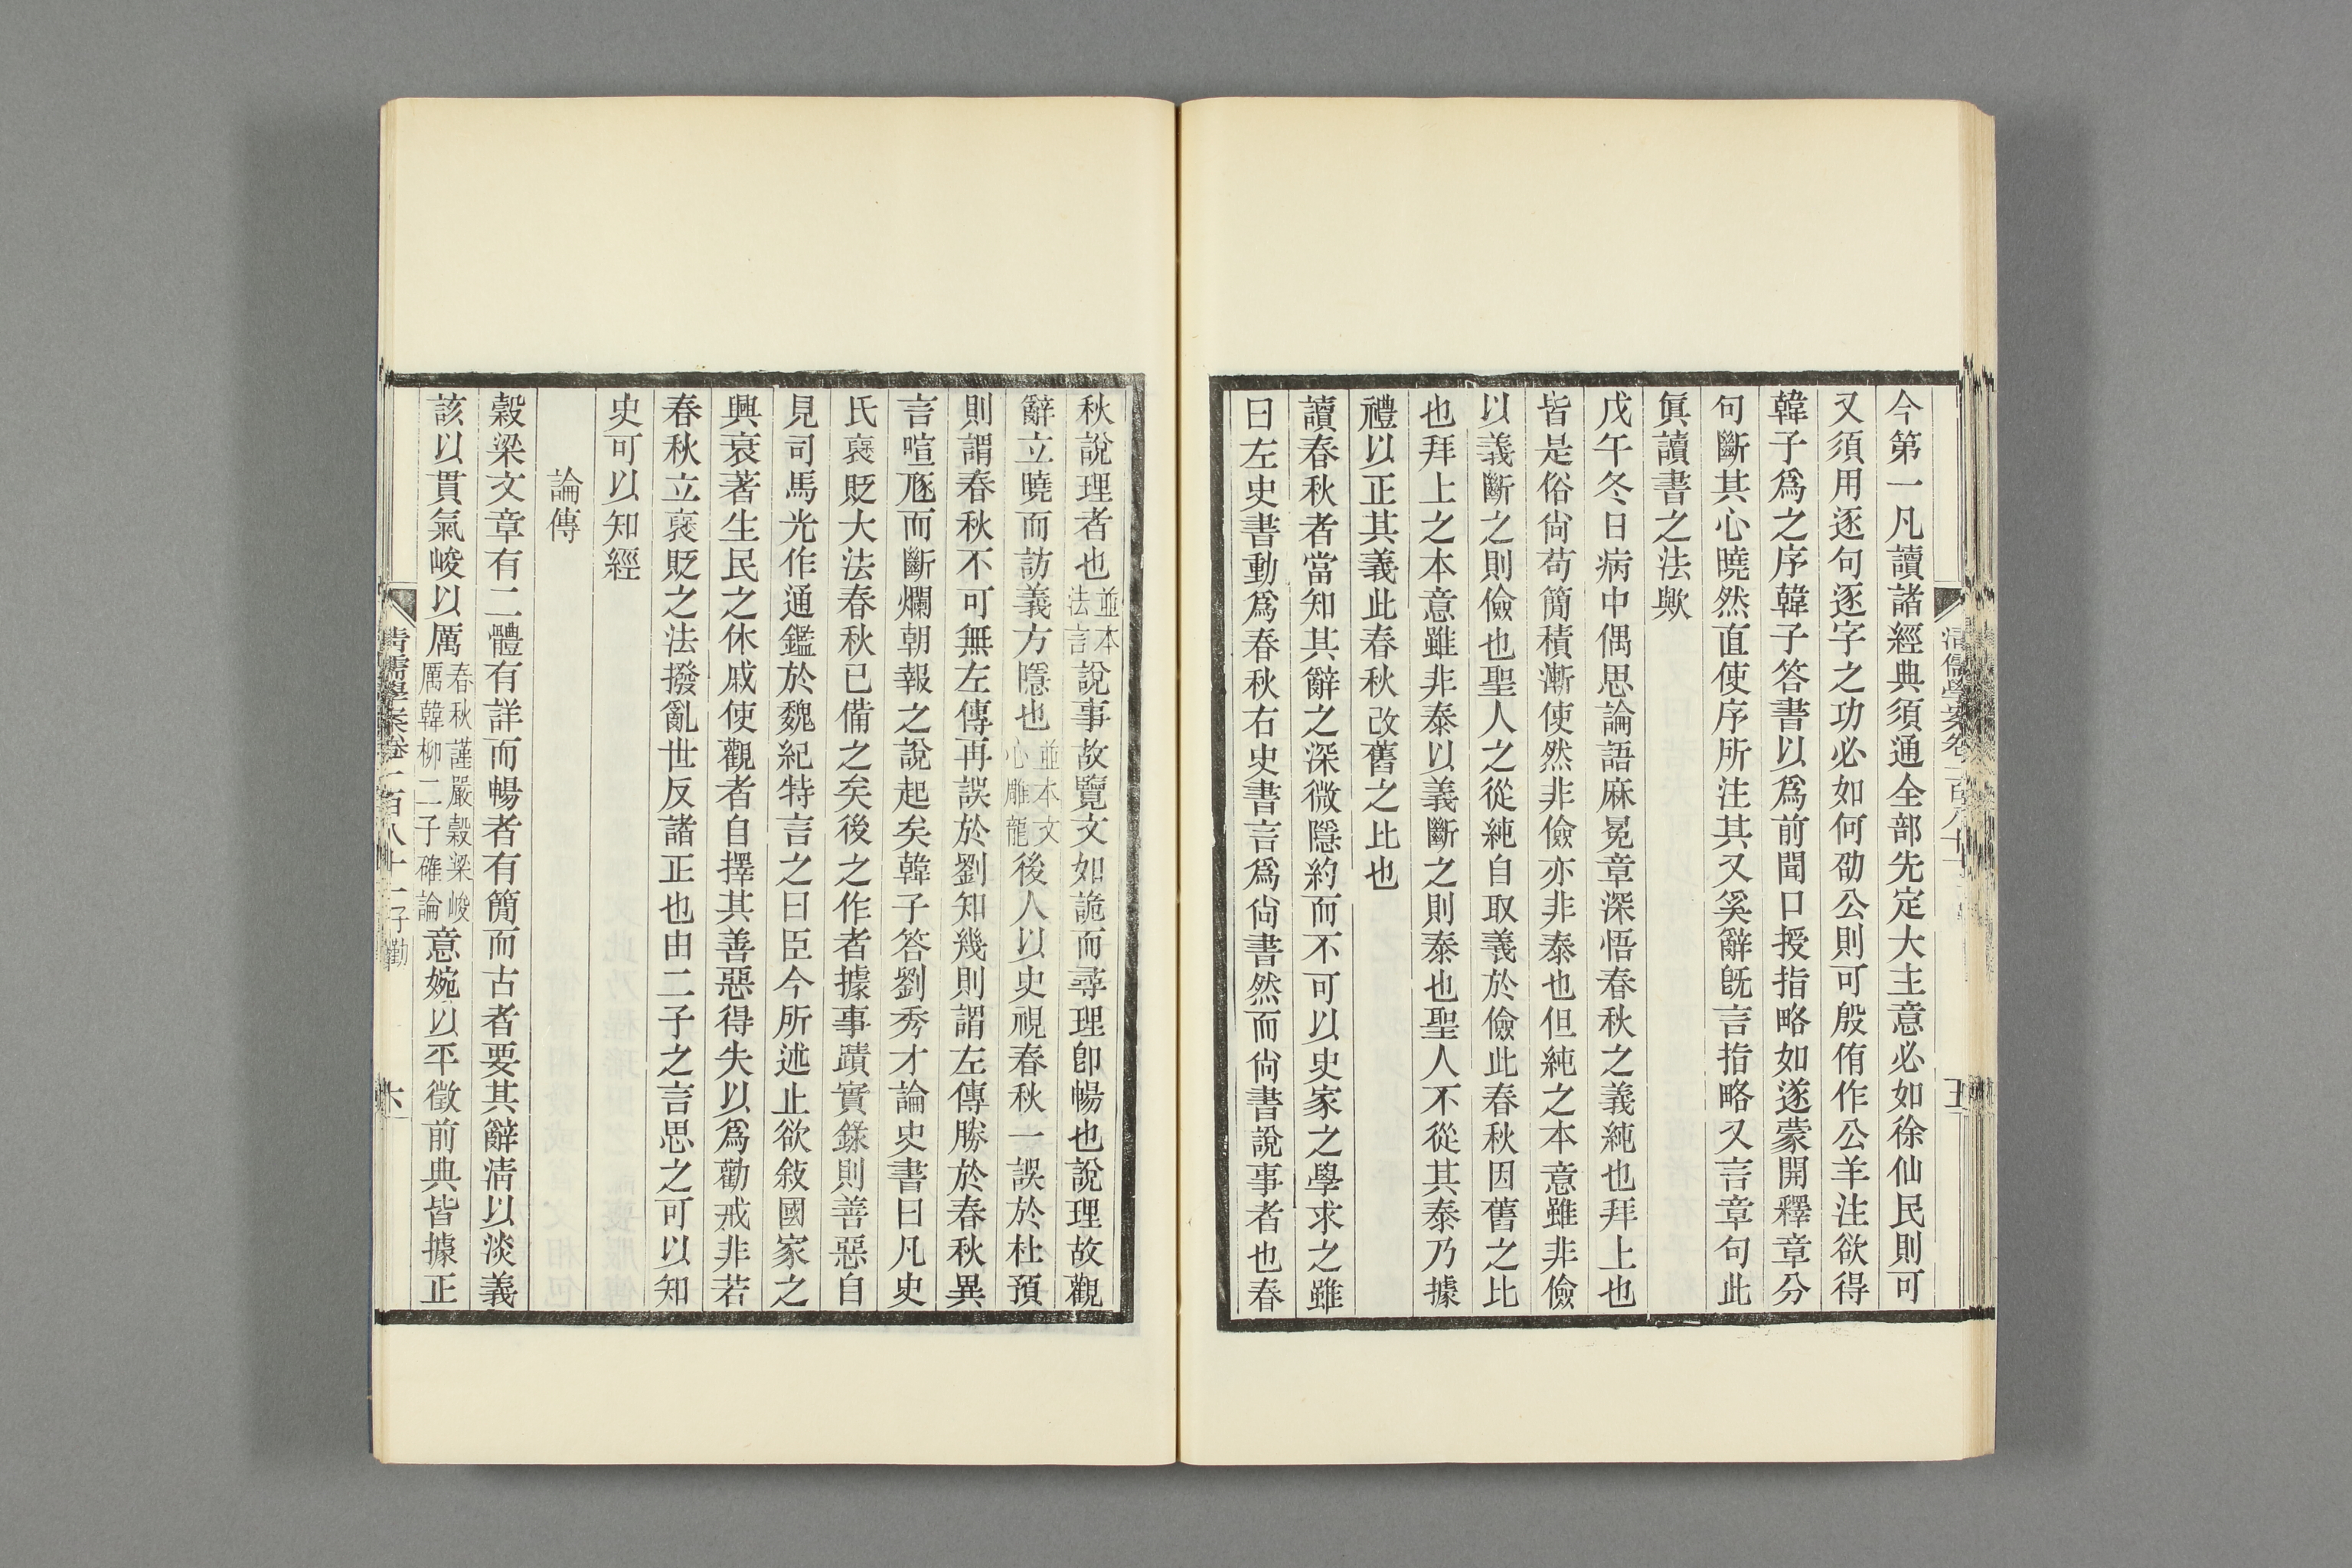 今第一凡讀諸經典須通全部先定大主意必如徐仙民則可
又須用逐句逐字之功必如何劭公則可殷侑作公羊注欲得
韓子爲之序韓子答書以爲前聞口授指略如遂蒙開釋章分
句斷其心曉然直使序所注其又奚辭旣言指略又言章句此
眞讀書之法歟
戊午冬日病中偶思論語麻冕章深悟春秋之義純也拜上也
皆是俗尙苟簡積漸使然非儉亦非泰也但純之本意雖非儉
以義斷之則儉也聖人之從純自取義於儉此春秋因舊之比
也拜上之本意雖非泰以義斷之則泰也聖人不從其泰乃據
禮以正其義此春秋改舊之比也
讀春秋者當知其辭之深微隱約而不可以史家之學求之雖
曰左史書動爲春秋右史書言爲尙書然而尙書說事者也春
秋說理者也並本法言說事故覽文如詭而尋理卽暢也說理故觀
辭立曉而訪義方隱也並本文心雕龍後人以史視春秋一誤於杜預
則謂春秋不可無左傳再誤於劉知幾則謂左傳勝於春秋異
言喧豗而斷爛朝報之說起矣韓子答劉秀才論史書曰凡史
氏襃貶大法春秋已備之矣後之作者據事蹟實錄則善惡自
見司馬光作通鑑於魏紀特言之曰臣今所述止欲敍國家之
興衰著生民之休戚使觀者自擇其善惡得失以爲勸戒非若
春秋立襃貶之法撥亂世反諸正也由二子之言思之可以知
史可以知經
論傳
穀梁文章有二體有詳而暢者有簡而古者要其辭淸以淡義
該以貫氣峻以厲春秋謹嚴穀梁峻厲韓柳二子確論意婉以平徵前典皆據正